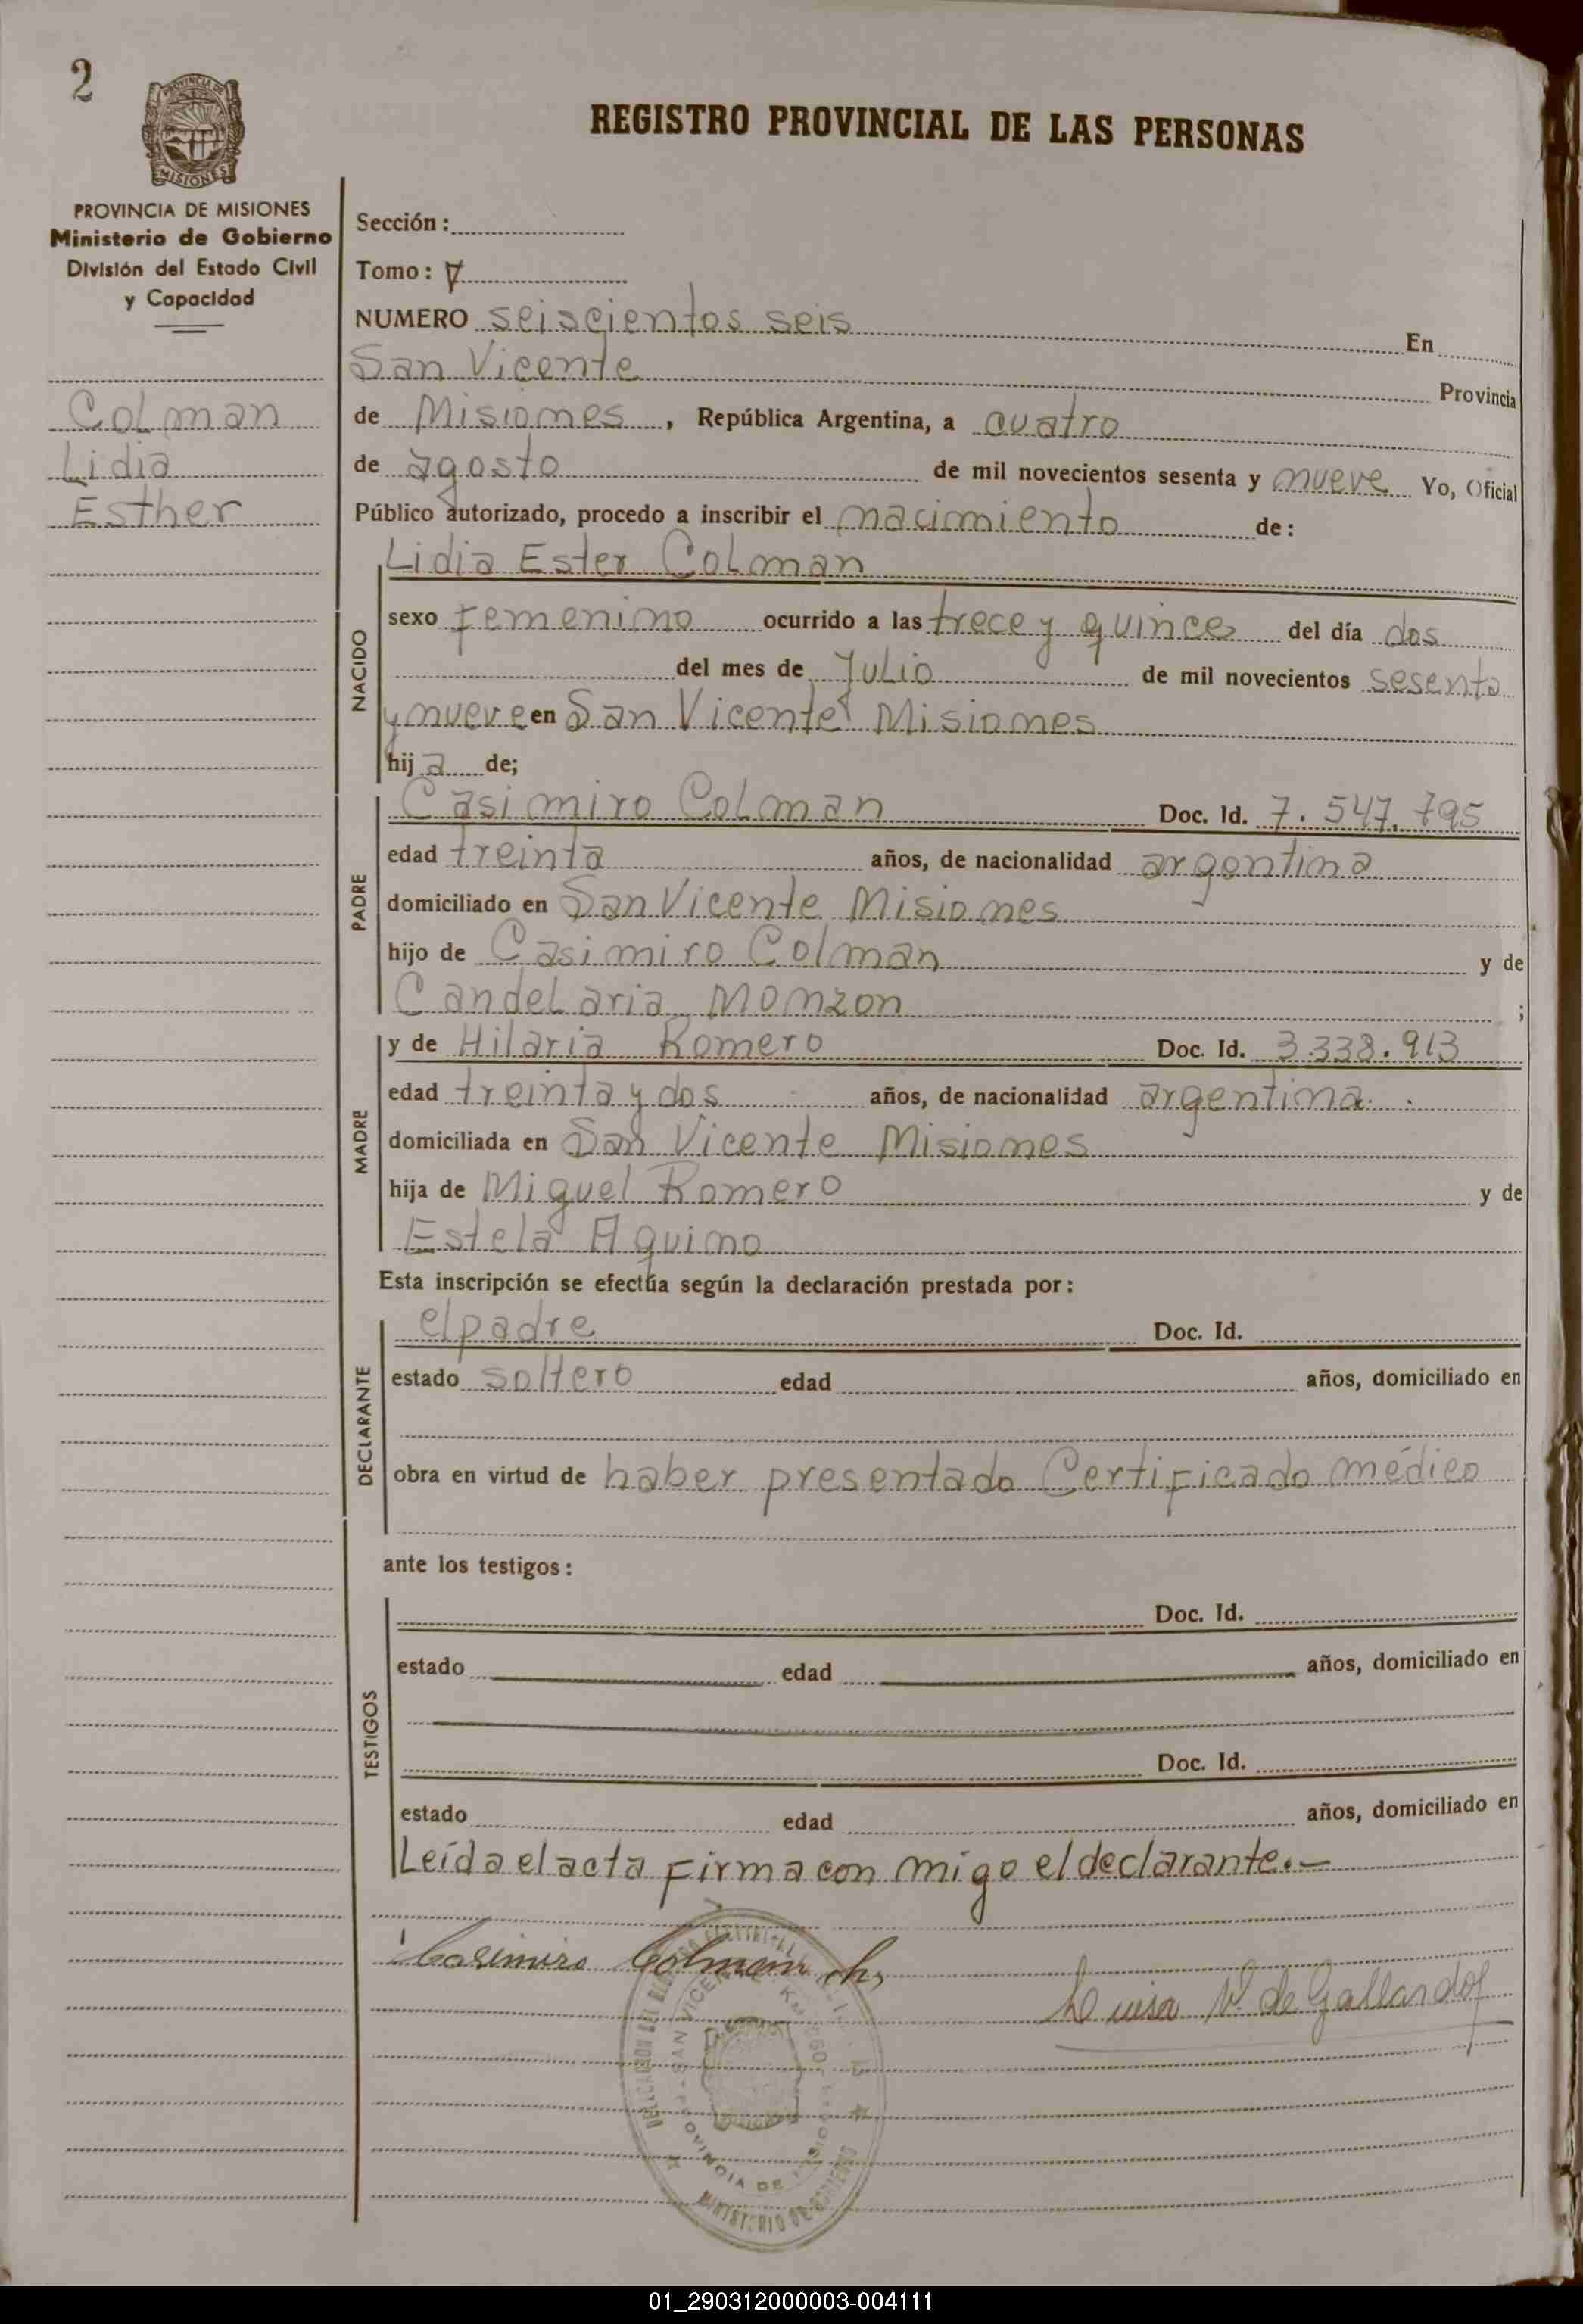 2
PROVINCIA DE MISIONES
MISIONES
PROVINCIA DE MISIONES
Ministerio de Gobierno
División del Estado Civil
y Capacidad
Colman
Lidia
Esther
REGISTRO PROVINCIAL DE LAS PERSONAS
Sección:
Tomo: V
NUMERO seiscientos seis En
San Vicente Provincia
de Misiones, República Argentina, a cuatro
de agosto de mil novecientos sesenta y nueve Yo, Oficial
Público autorizado, procedo a inscribir el nacimiento de:
NACIDO
Lidia Ester Colman
sexo femenino ocurrido a las trece y quince del día dos
del mes de Julio de mil novecientos sesenta
y nueve en San Vicente Misiones
hija de;
PADRE
Casimiro Colman Doc. Id. 7.547.795
edad treinta años, de nacionalidad argentina
domiciliado en San Vicente Misiones
hijo de Casimiro Colman y de
Candelaria Monzon ;
MADRE
y de Hilaria Romero Doc. Id. 3.338.913
edad treinta y dos años, de nacionalidad argentina
domiciliada en San Vicente Misiones
hija de Miguel Romero y de
Estela Aquino
Esta inscripción se efectúa según la declaración prestada por:
DECLARANTE
el padre Doc. Id.
estado soltero edad años, domiciliado en
obra en virtud de haber presentado Certificado médico
ante los testigos:
TESTIGOS
Doc. Id.
estado edad años, domiciliado en
Doc. Id.
estado edad años, domiciliado en
Leída el acta firma con migo el declarante.-
Casimiro Colman h,
Luisa V. de Gallardo
SAN VICENTE
PROVINCIA DE MISIONES
MINISTERIO DE GOBIERNO
01_290312000003-004111